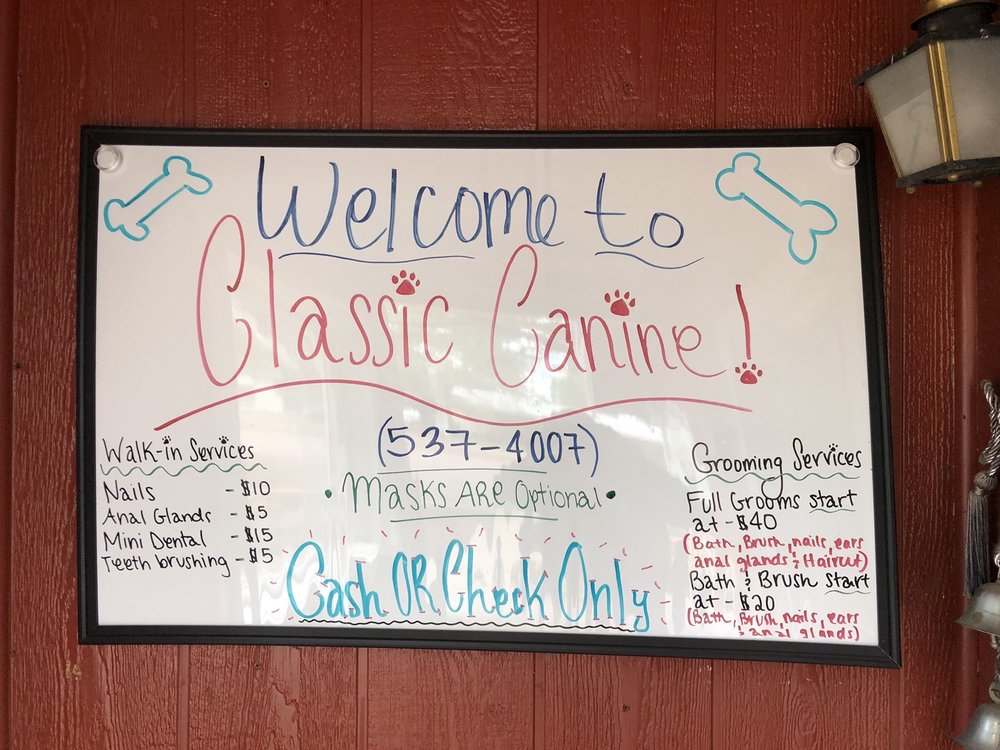 Welcome to
Classic Canine!
(537-4007)
• Masks ARE Optional •
Cash OR Check Only
Walk-in Services
Nails - $10
Anal Glands - $5
Mini Dental - $15
Teeth brushing - $5
Grooming Services
Full Grooms start
at - $40
(Bath, Brush, nails, ears
anal glands & Haircut)
Bath & Brush start
at - $20
(Bath, Brush, nails, ears
& anal glands)